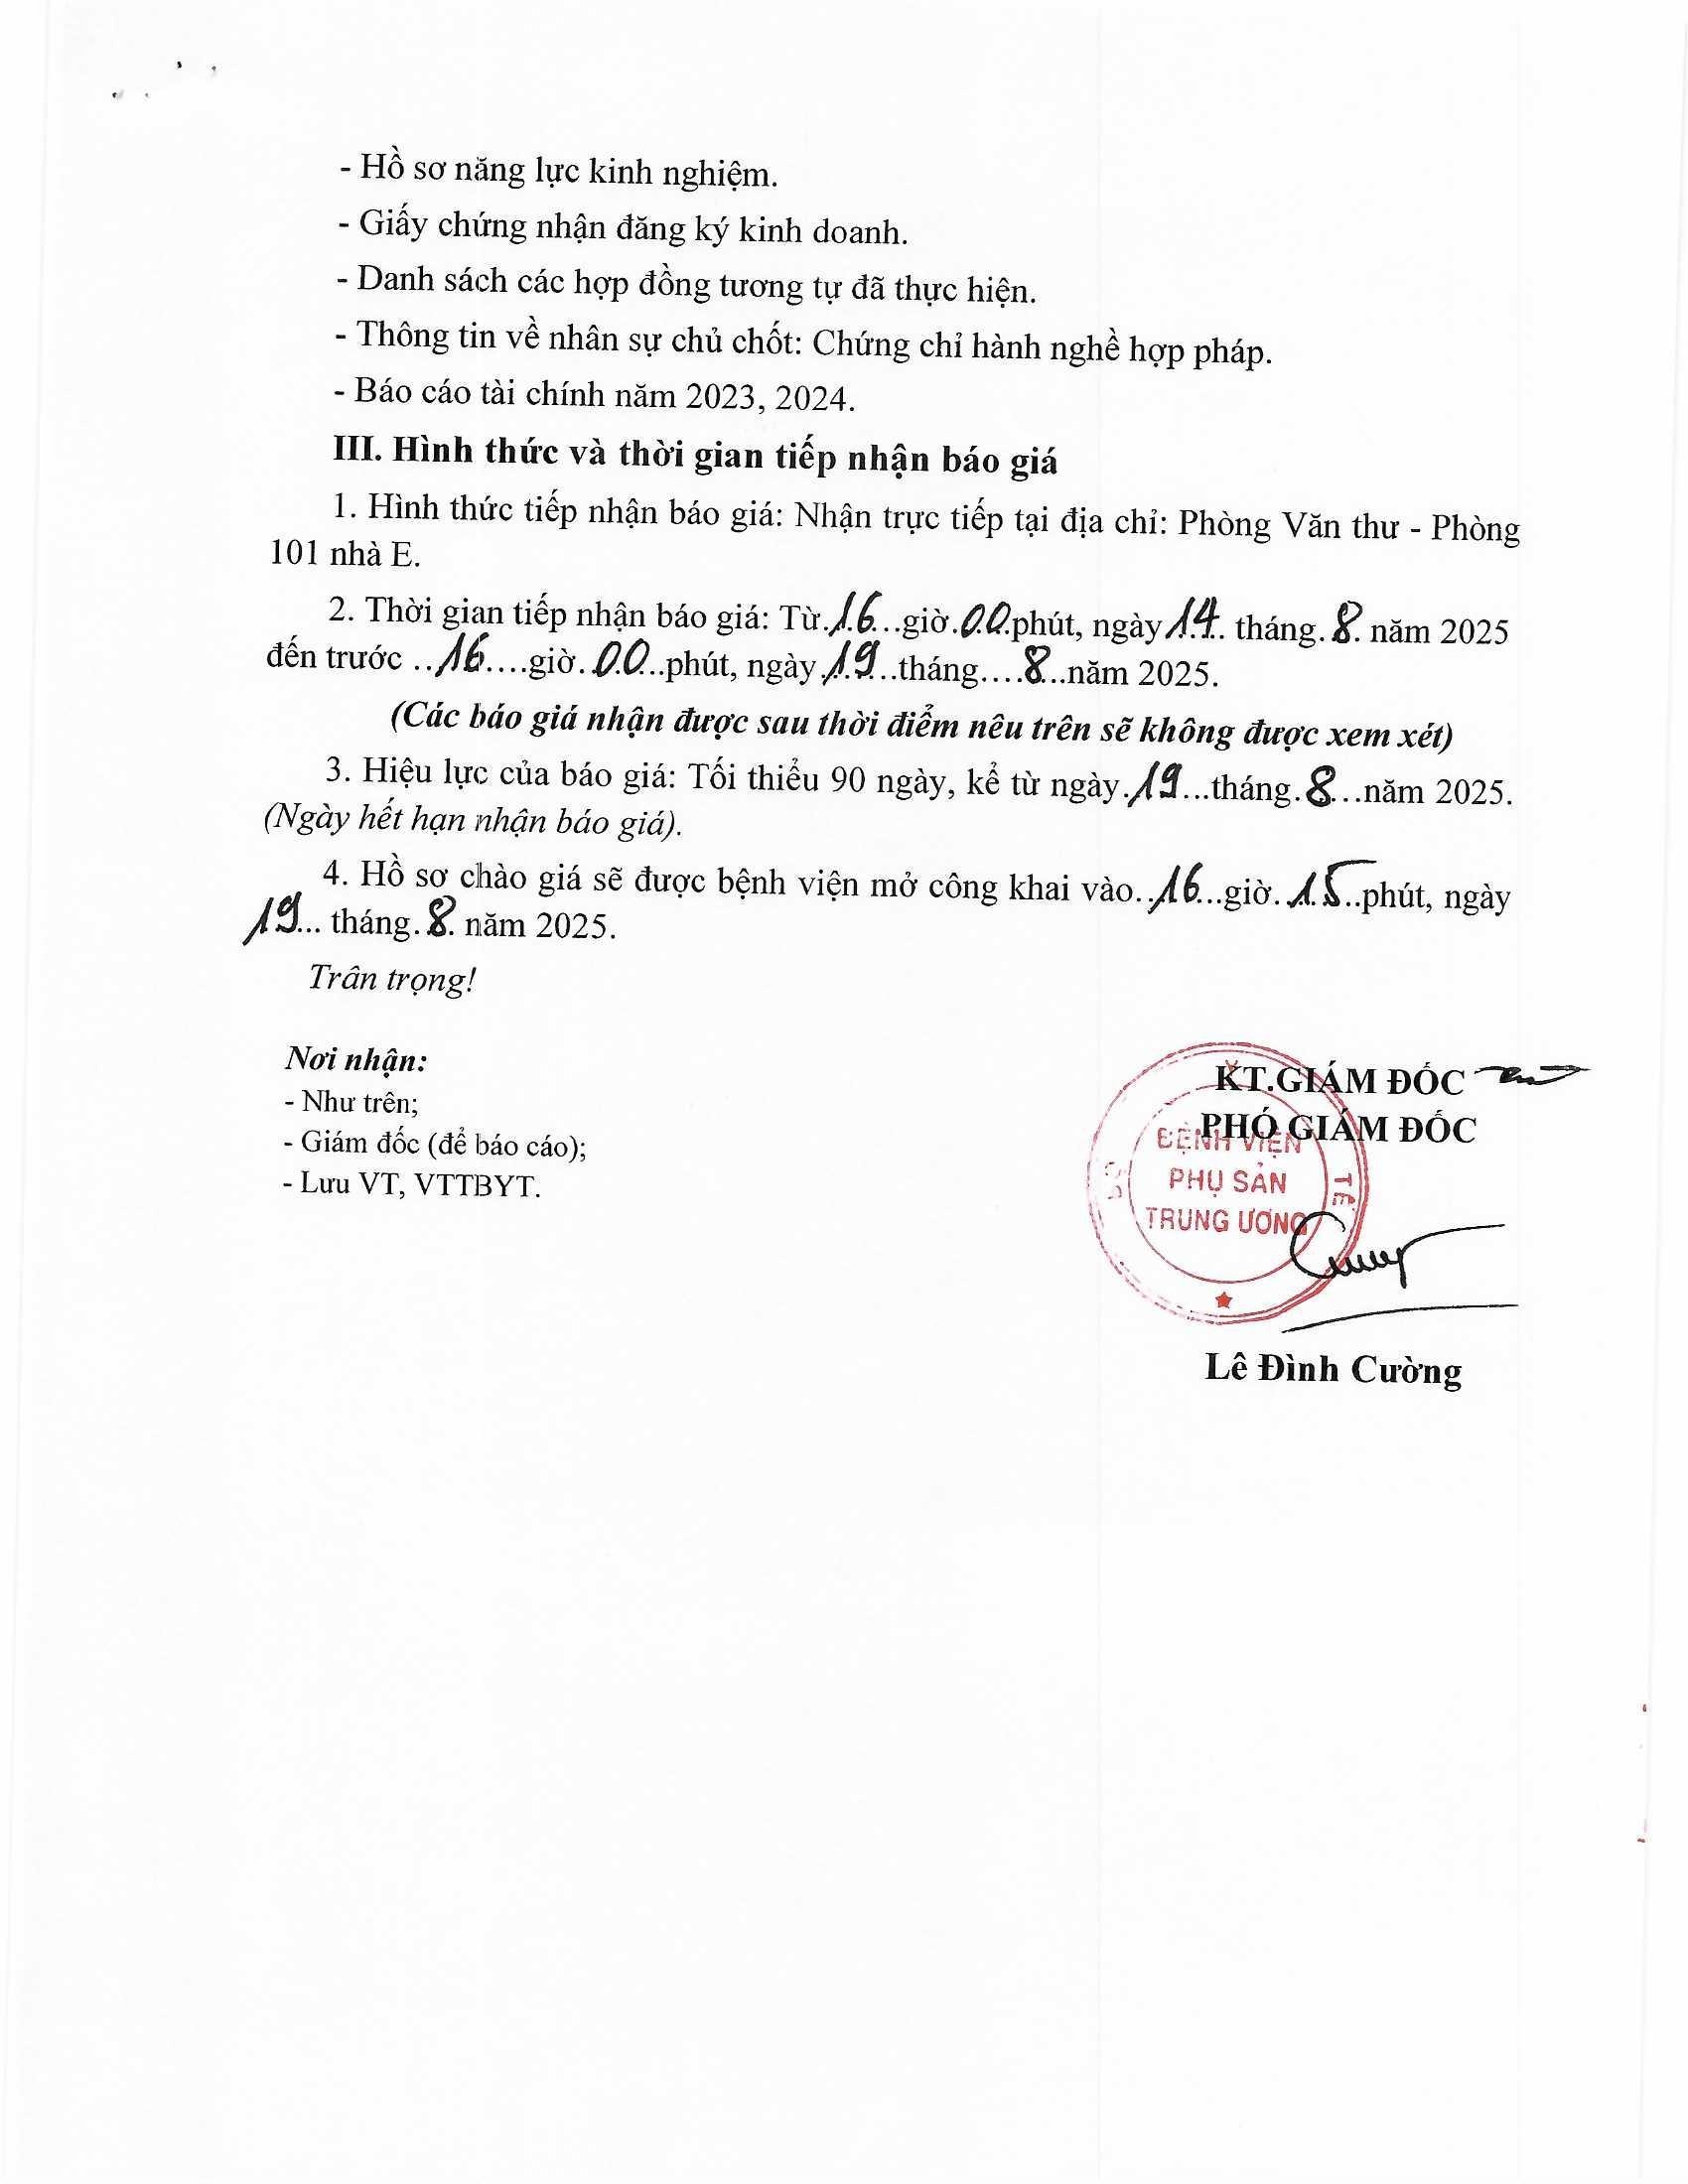 - Hồ sơ năng lực kinh nghiệm.
- Giấy chứng nhận đăng ký kinh doanh.
- Danh sách các hợp đồng tương tự đã thực hiện.
- Thông tin về nhân sự chủ chốt: Chứng chỉ hành nghề hợp pháp.
- Báo cáo tài chính năm 2023, 2024.
III. Hình thức và thời gian tiếp nhận báo giá
1. Hình thức tiếp nhận báo giá: Nhận trực tiếp tại địa chỉ: Phòng Văn thư - Phòng
101 nhà E.
2. Thời gian tiếp nhận báo giá: Từ 16 giờ 00 phút, ngày 14 tháng 8 năm 2025
đến trước 16 giờ 00 phút, ngày 19 tháng 8 năm 2025.
(Các báo giá nhận được sau thời điểm nêu trên sẽ không được xem xét)
3. Hiệu lực của báo giá: Tối thiểu 90 ngày, kể từ ngày 19 tháng 8 năm 2025.
(Ngày hết hạn nhận báo giá).
4. Hồ sơ chào giá sẽ được bệnh viện mở công khai vào 16 giờ 15 phút, ngày
19 tháng 8 năm 2025.
Trân trọng!
Nơi nhận:
- Như trên;
- Giám đốc (để báo cáo);
- Lưu VT, VTTBYT.
KT.GIÁM ĐỐC
PHÓ GIÁM ĐỐC
BỆNH VIỆN
PHỤ SẢN
TRUNG ƯƠNG
TẾ
Lê Đình Cường